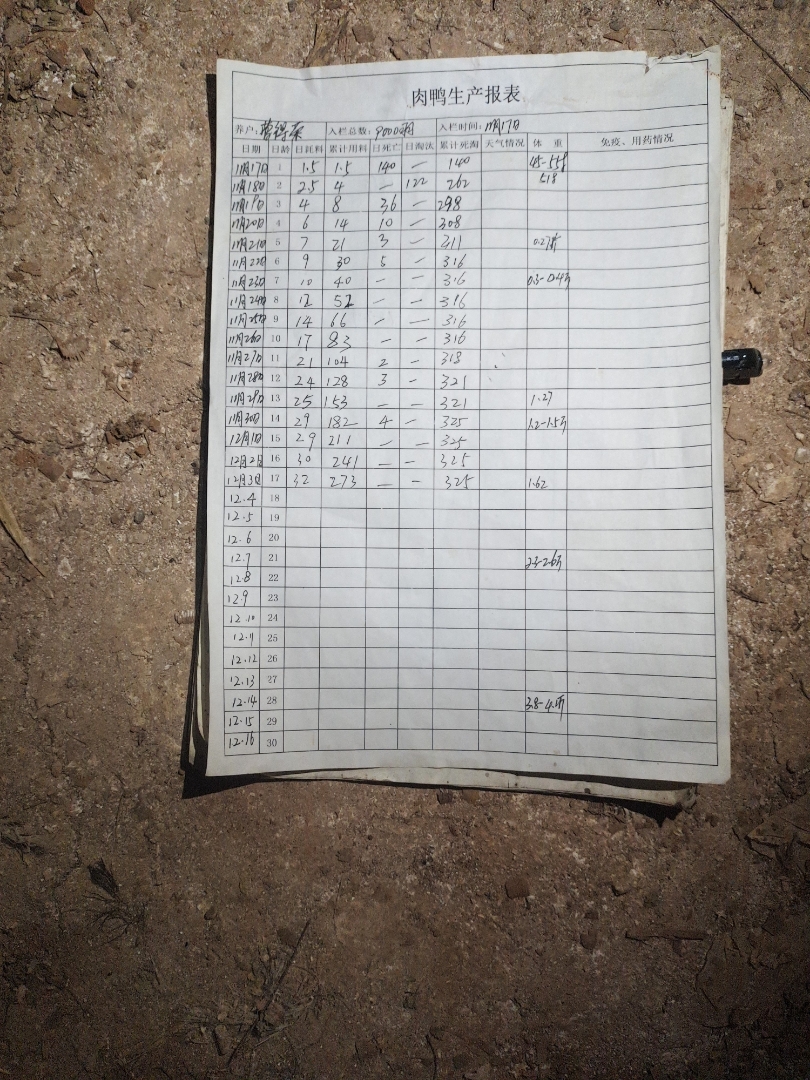 肉鸭生产报表
养户: 入栏总数: 9000羽 入栏时间: 11月17日
日期 日龄 日耗料 累计用料 日死亡 日淘汰 累计死淘 天气情况 体 重 免疫、用药情况
11月17日 1 1.5 1.5 140 — 140 45-55g
11月18日 2 2.5 4 — 122 262 51g
11月19日 3 4 8 36 — 298
11月20日 4 6 14 10 — 308
11月21日 5 7 21 3 — 311 0.27斤
11月22日 6 9 30 5 — 316
11月23日 7 10 40 — — 316 0.3-0.4斤
11月24日 8 12 52 — — 316
11月25日 9 14 66 — — 316
11月26日 10 17 83 — — 316
11月27日 11 21 104 2 — 318
11月28日 12 24 128 3 — 321
11月29日 13 25 153 — — 321 1.27
11月30日 14 29 182 4 — 325 1.2-1.5斤
12月1日 15 29 211 — — 325
12月2日 16 30 241 — — 325
12月3日 17 32 273 — — 325 1.62
12.4 18
12.5 19
12.6 20
12.7 21 2.3-2.6斤
12.8 22
12.9 23
12.10 24
12.11 25
12.12 26
12.13 27
12.14 28 3.8-4.1斤
12.15 29
12.16 30